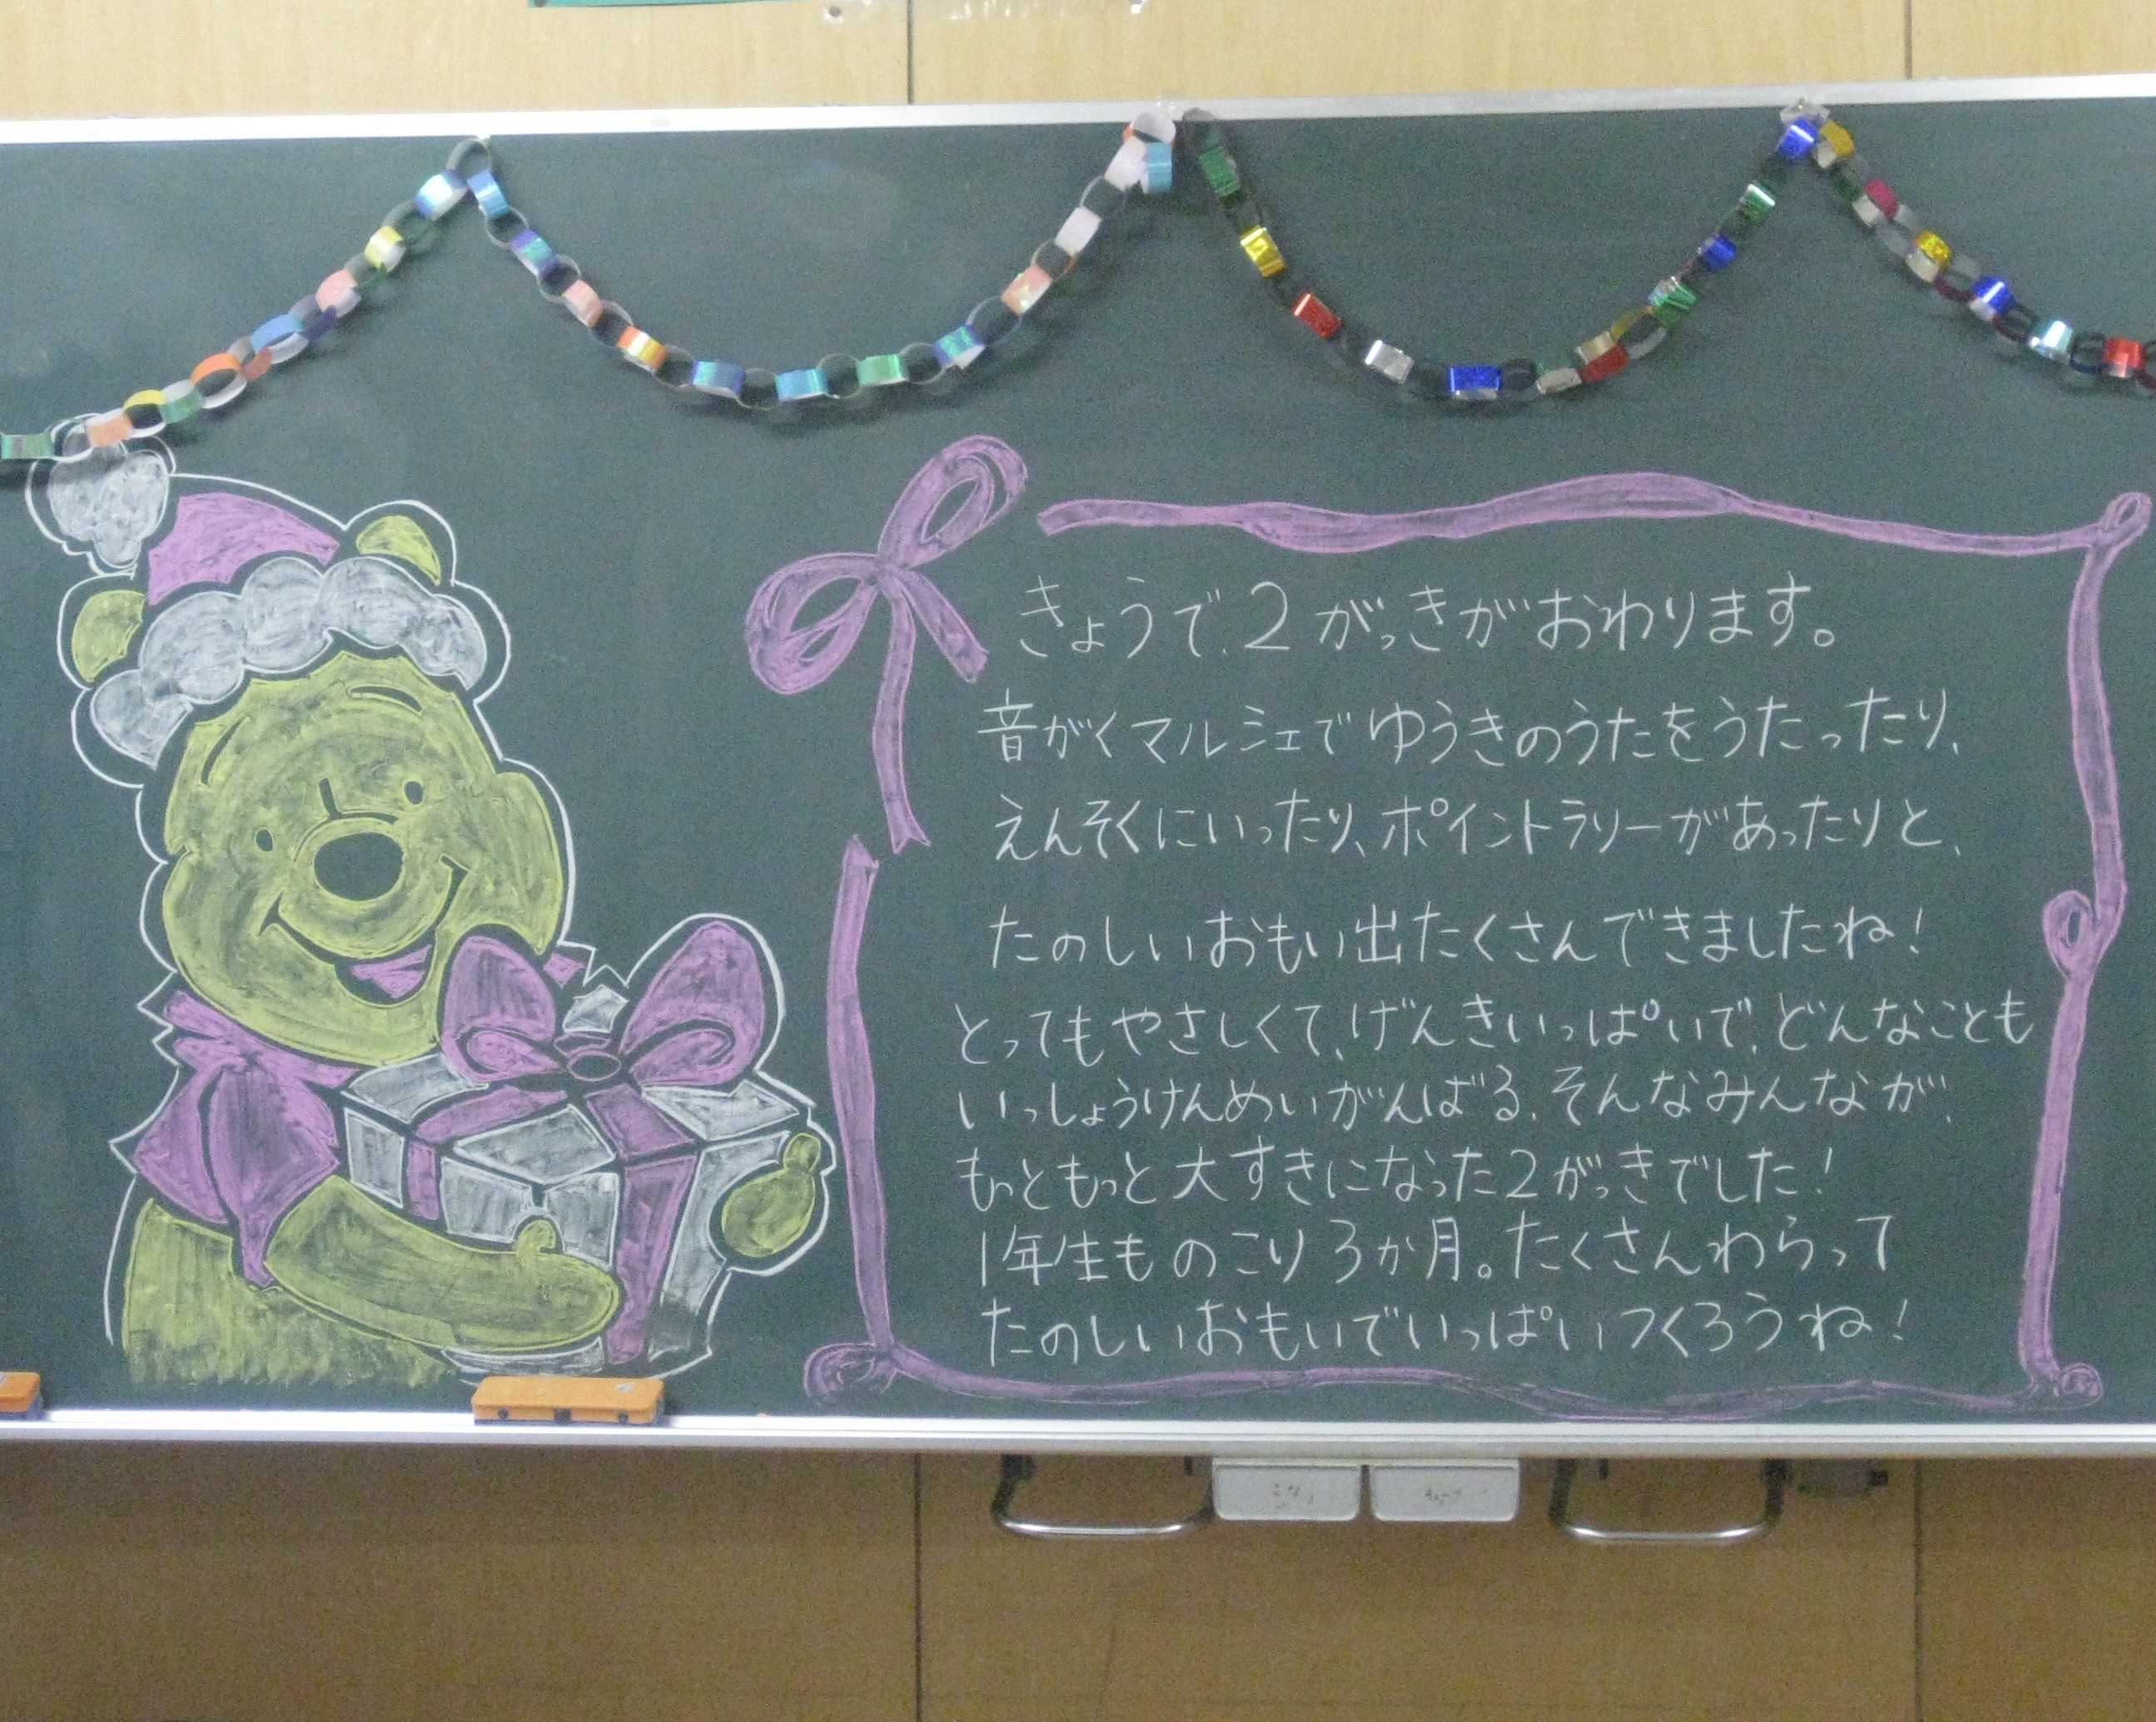 きょうで、2がっきがおわります。
音がくマルシェでゆうきのうたをうたったり、
えんそくにいったり、ポイントラリーがあったりと、
たのしいおもい出たくさんできましたね！
とってもやさしくて、げんきいっぱいで、どんなことも
いっしょうけんめいがんばる、そんなみんなが、
もっともっと大すきになった2がっきでした！
1年生ものこり3か月。たくさんわらって
たのしいおもいでいっぱいつくろうね！